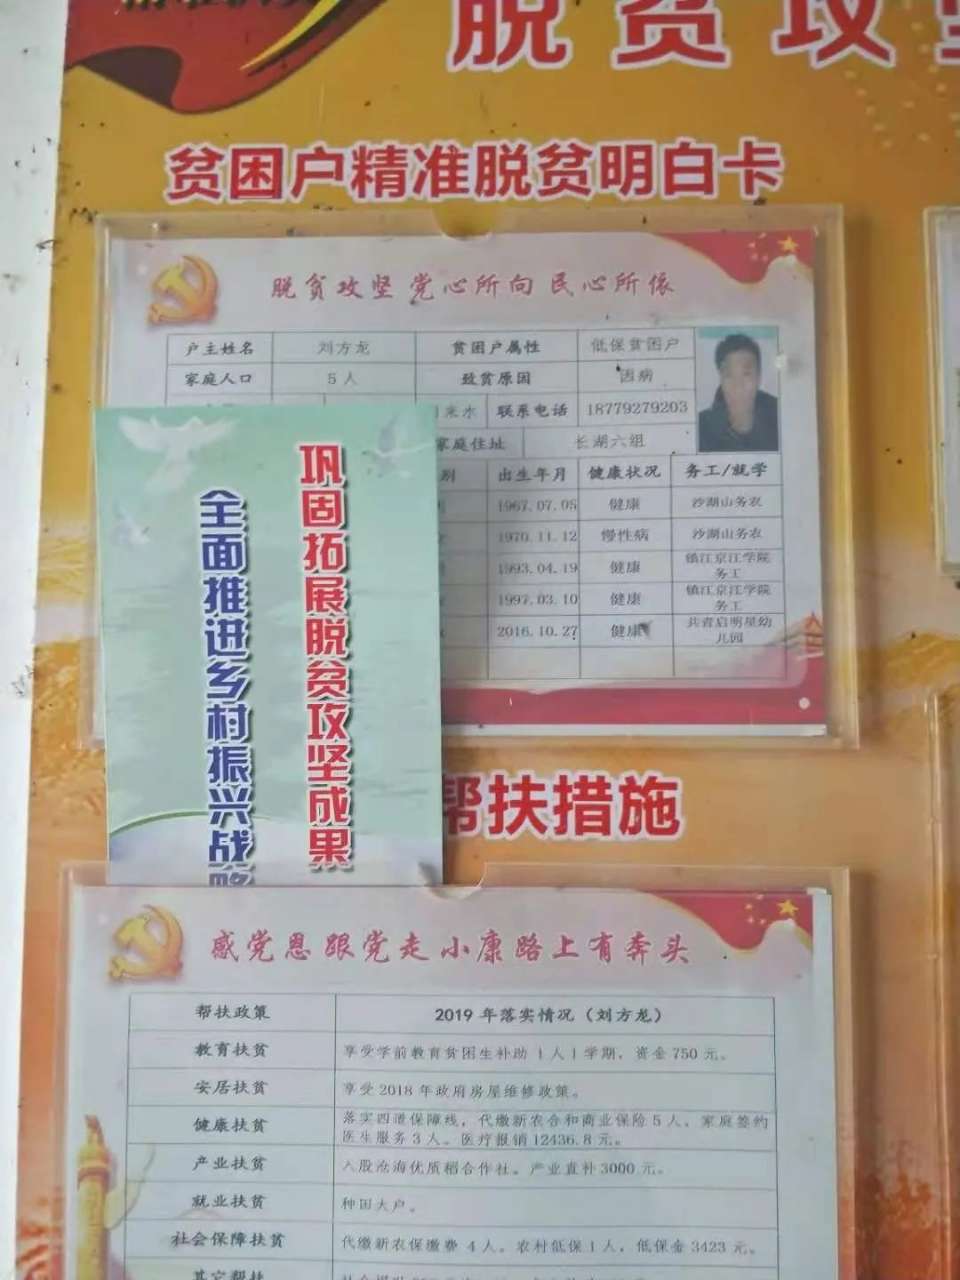 脱贫攻坚
贫困户精准脱贫明白卡
脱贫攻坚 党心所向 民心所依
户主姓名 刘方龙 贫困户属性 低保贫困户
家庭人口 5人 致贫原因 因病
来水 联系电话 18779279203
家庭住址 长湖六组
别 出生年月 健康状况 务工/就学
1967.07.05 健康 沙湖山务农
1970.11.12 慢性病 沙湖山务农
1993.04.19 健康 镇江京江学院务工
1997.03.10 健康 镇江京江学院务工
2016.10.27 健康 共青启明星幼儿园
巩固拓展脱贫攻坚成果
全面推进乡村振兴战略
帮扶措施
感党恩跟党走小康路上有奔头
帮扶政策 2019年落实情况（刘方龙）
教育扶贫 享受学前教育贫困生补助1人1学期，资金750元。
安居扶贫 享受2018年政府房屋维修政策。
健康扶贫 落实四道保障线，代缴新农合和商业保险5人，家庭签约
医生服务3人。医疗报销12436.8元。
产业扶贫 入股沧海优质稻合作社。产业直补3000元。
就业扶贫 种田大户。
社会保障扶贫 代缴新农保缴费4人。农村低保1人，低保金3423元。
其它帮扶